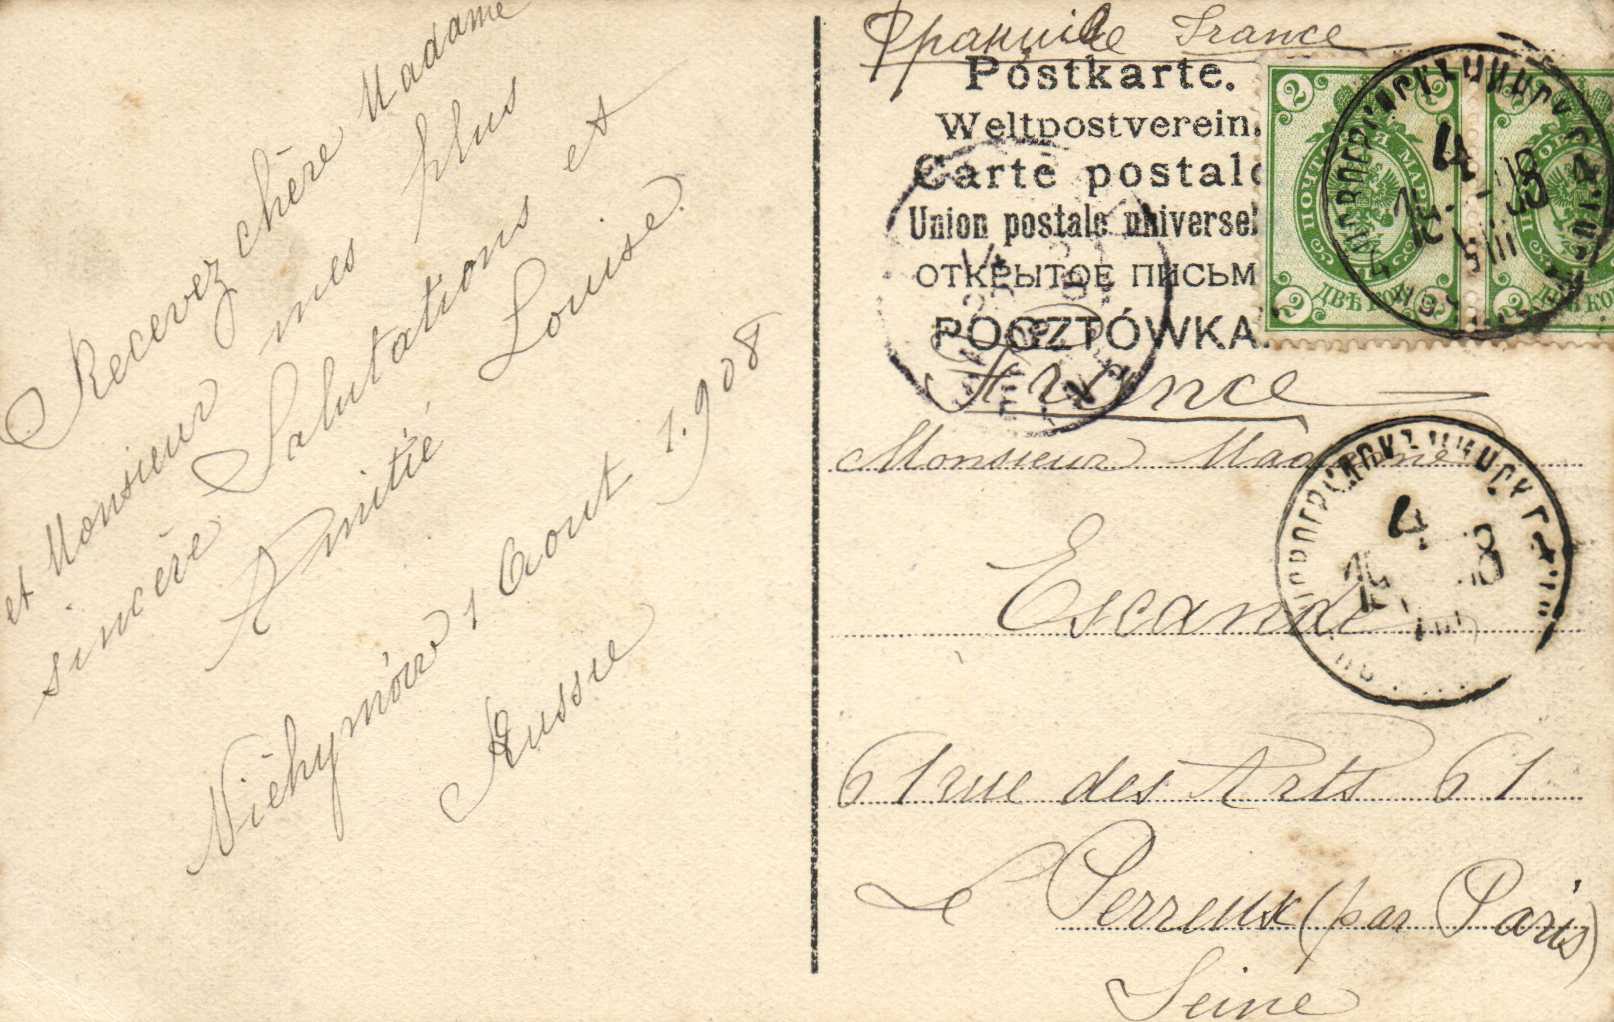 Recevez chère Madame
et Monsieur mes plus
sincère Salutations et
Amitié Louise.
1 Aout 1.908
Russie
Франція France
Postkarte.
Weltpostverein.
Carte postale
Union postale universel
ОТКРЫТОЕ ПИСЬМ
POCZTÓWKA.
2 2
ПОЧТОВАЯ МАРК
2 ДВѢ КОП
2
4
4
France
Monsieur Madame
Escande
61 rue des Arts 61
Le Perreux (par Paris)
Seine